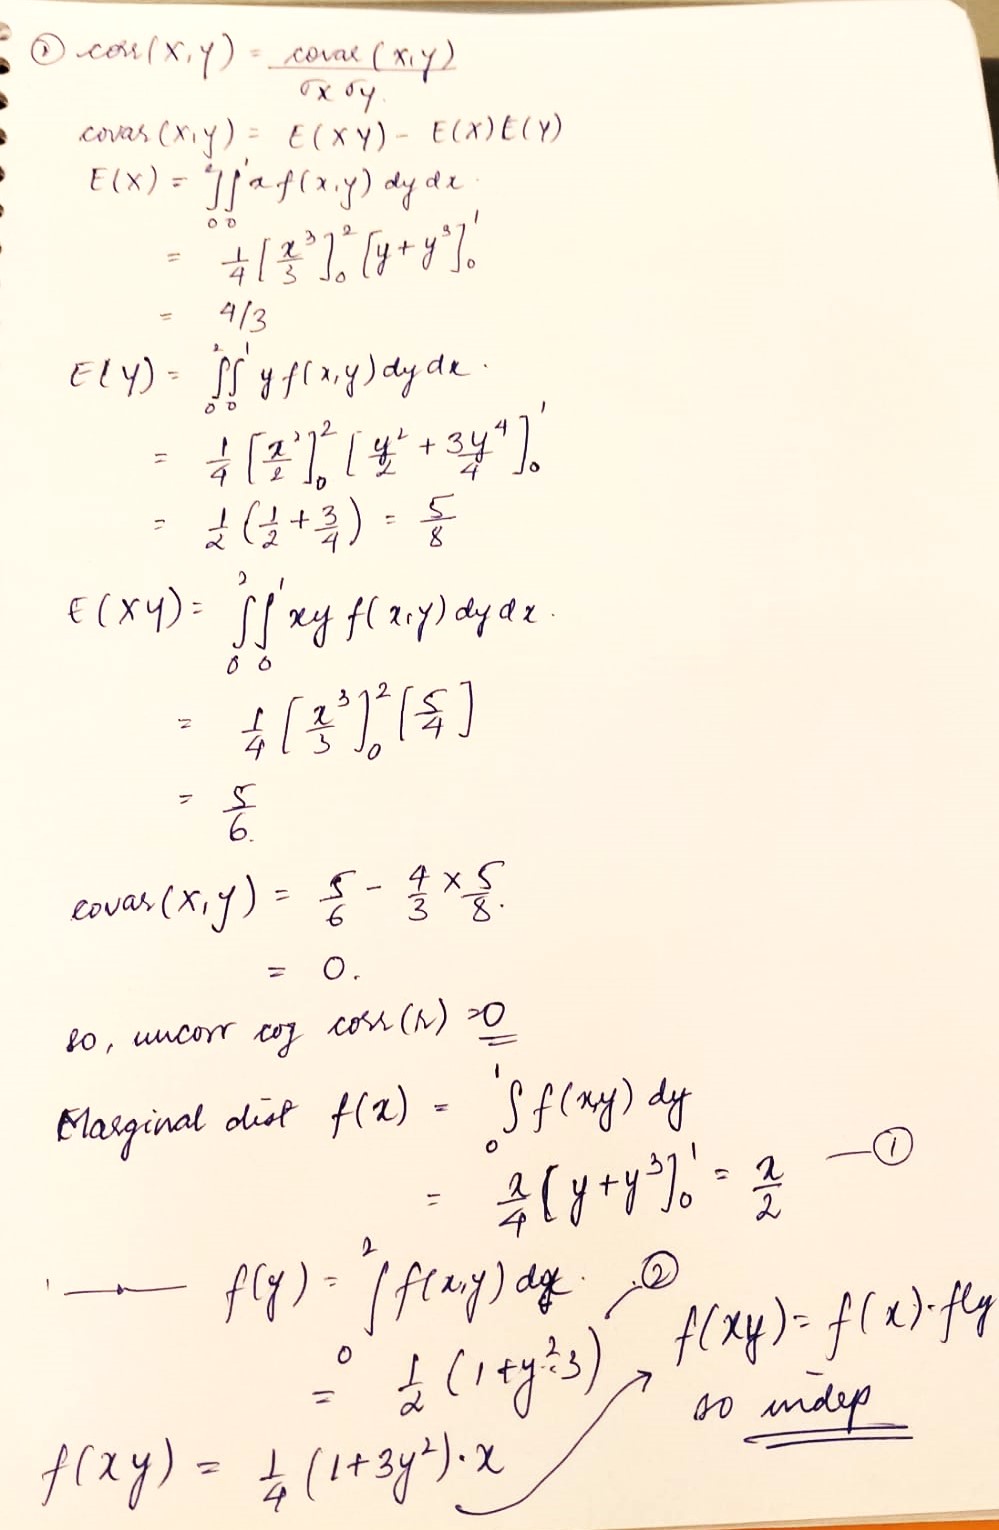 ② corr(X,Y) = covar(X,Y) / σx σy
covar(X,Y) = E(XY) - E(X)E(Y)
E(X) = ∫₀²∫₀¹ x f(x,y) dy dx.
= 1/4 [x³/3]₀² [y+y³]₀¹
= 4/3
E(Y) = ∫₀²∫₀¹ y f(x,y) dy dx.
= 1/4 [x²/2]₀² [y²/2 + 3y⁴/4]₀¹
= 1/2 (1/2 + 3/4) = 5/8
E(XY) = ∫₀²∫₀¹ xy f(x,y) dy dx.
= 1/4 [x³/3]₀² [5/4]
= 5/6.
covar(X,Y) = 5/6 - 4/3 × 5/8.
= 0.
so, uncorr coz corr(r) = 0
Marginal dist f(x) = ∫₀¹ f(xy) dy
= x/4 [y+y³]₀¹ = x/2 — ①
f(y) = ∫₀² f(x,y) dx. ②
= 1/2 (1+y²·3)
f(xy) = f(x)·f(y
so indep
f(xy) = 1/4 (1+3y²)·x